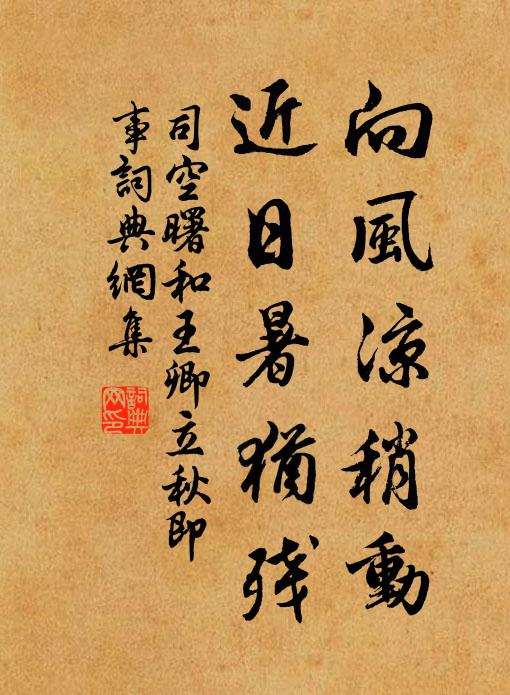 向風涼稍動
近日暑猶残
司空曙和王卿立秋即
事詞典網集
詞典
网印